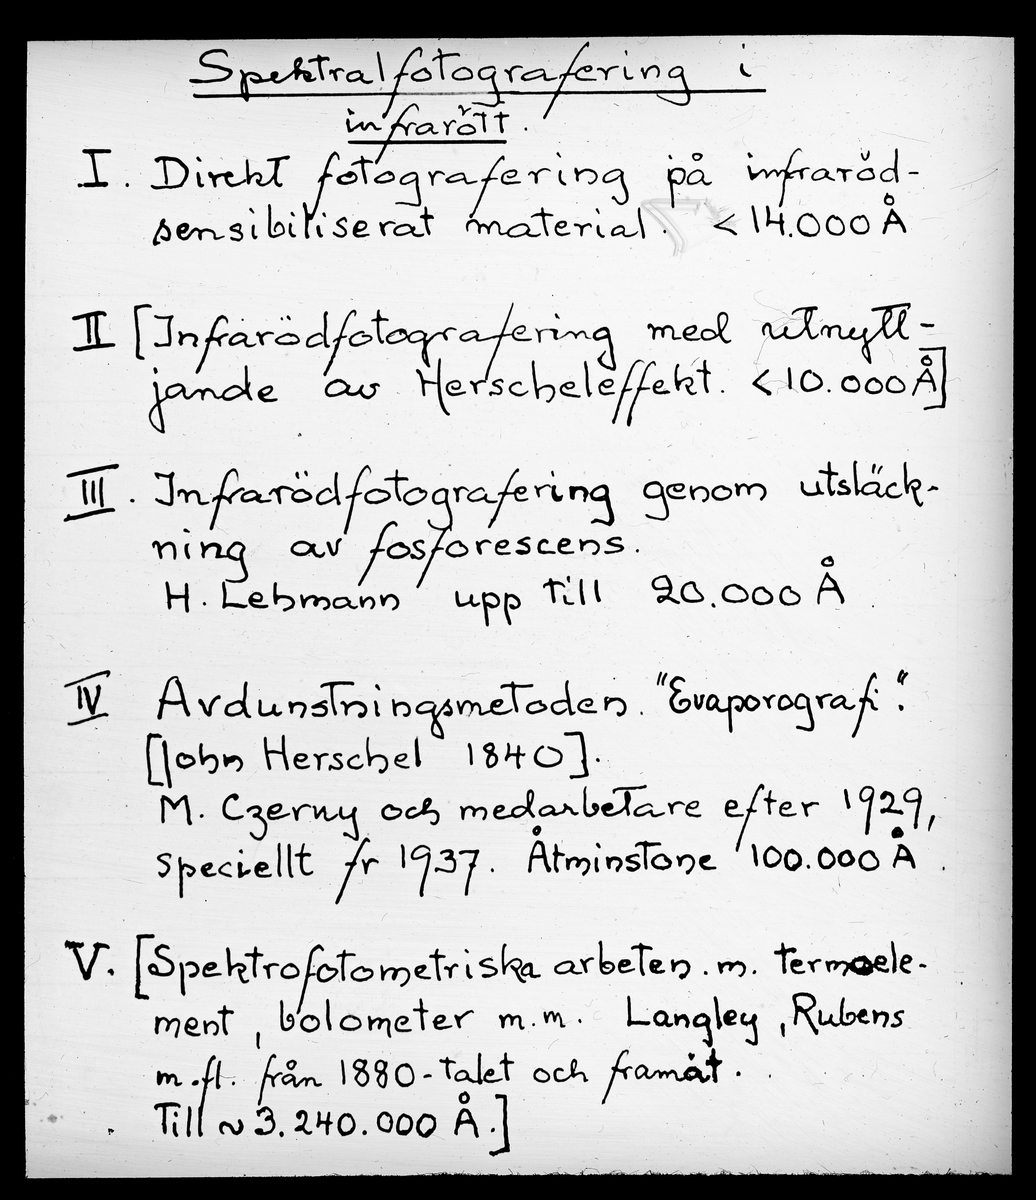 Spektralfotografering i
infrarött.
I. Direkt fotografering på infraröd-
sensibiliserat material. < 14.000 Å
II [Infrarödfotografering med utnytt-
jande av Herscheleffekt. < 10.000 Å]
III. Infrarödfotografering genom utsläck-
ning av fosforescens.
H. Lehmann upp till 20.000 Å
IV Avdunstningsmetoden. "Evaporografi".
[John Herschel 1840].
M. Czerny och medarbetare efter 1929,
speciellt fr 1937. Åtminstone 100.000 Å.
V. [Spektrofotometriska arbeten. m. termoele-
ment, bolometer m.m. Langley, Rubens
m.fl. från 1880-talet och framåt.
Till ~ 3.240.000 Å.]